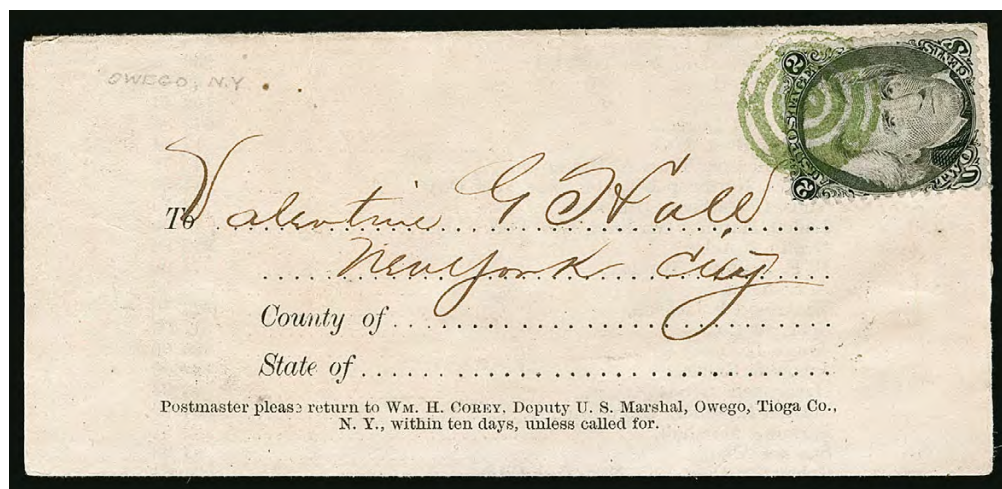 OWEGO, N.Y
U.S. POSTAGE
2 2
TWO CENTS
U S
To Valentine G Hall
New York City
County of
State of
Postmaster please return to WM. H. COREY, Deputy U. S. Marshal, Owego, Tioga Co.,
N. Y., within ten days, unless called for.